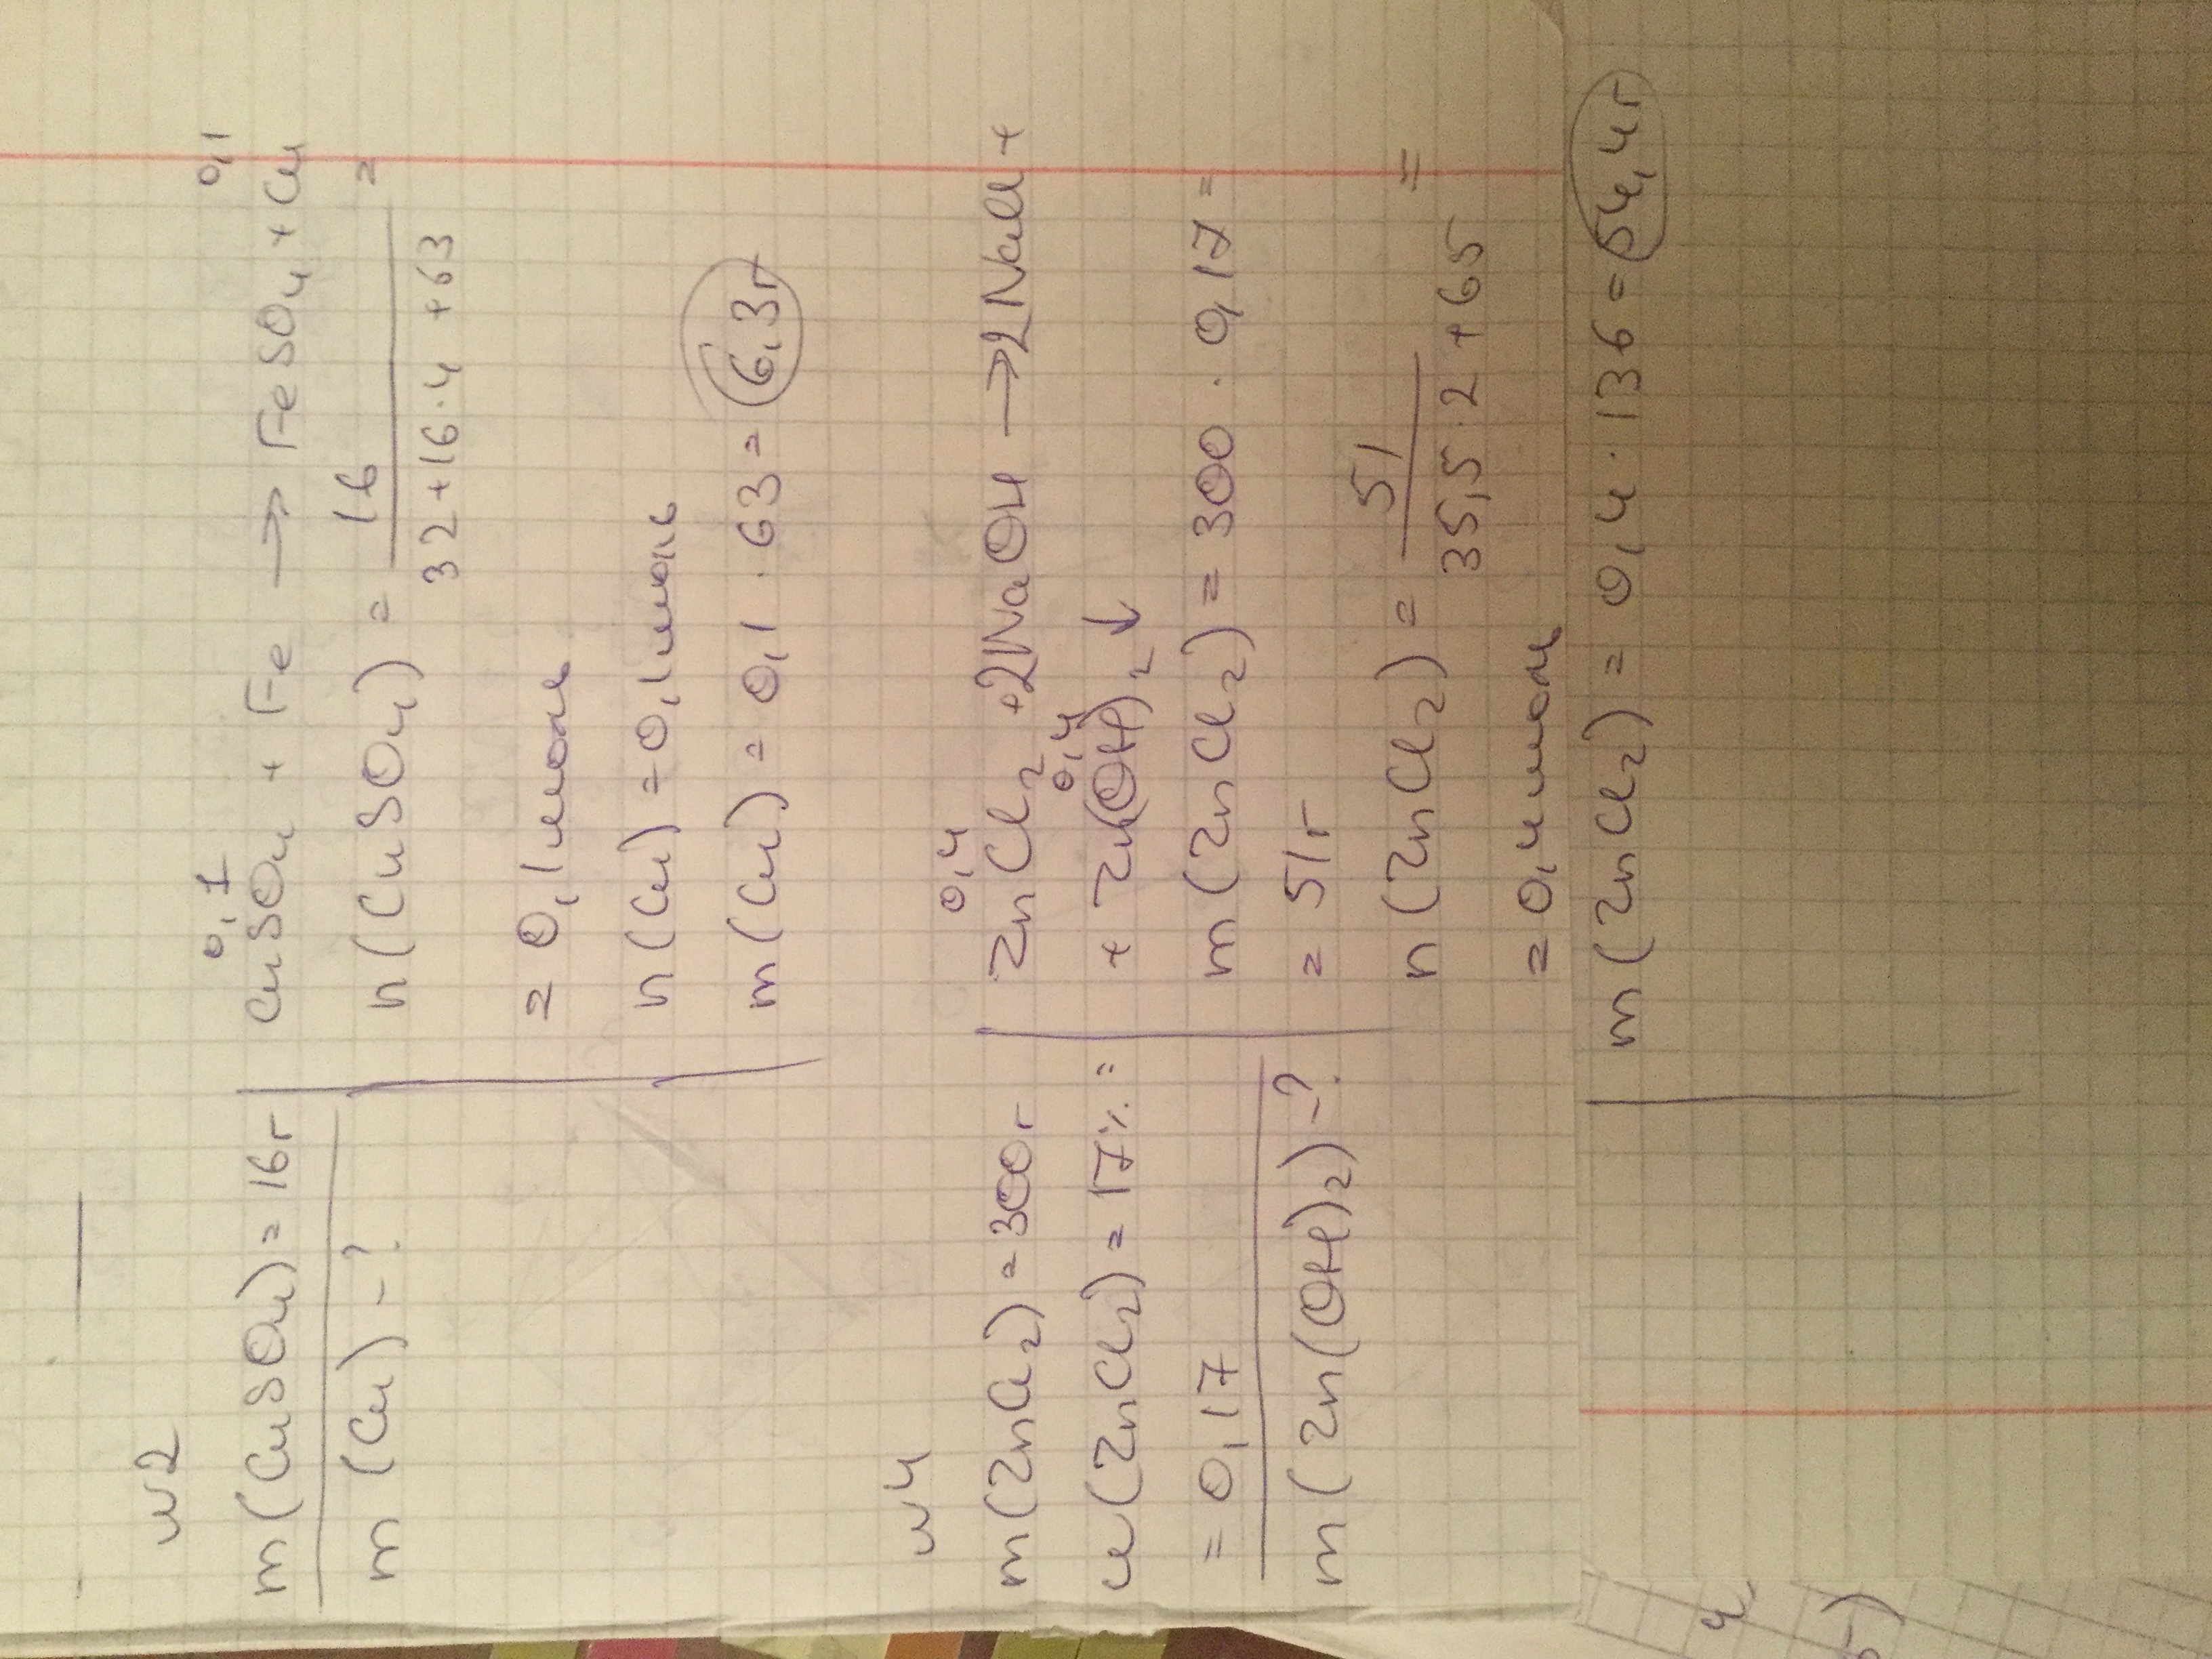 №2
m(CuSO4)=16г
m(Cu)-?
0,1 0,1
CuSO4 + Fe → FeSO4 + Cu
n(CuSO4) = 16 =
32+16·4+63
= 0,1 моль
n(Cu)=0,1 моль
m(Cu) = 0,1 · 63 = 6,3г
№4
m(ZnCl2)=300г
w(ZnCl2)=17% =
= 0,17
m(Zn(OH)2)-?
0,4
ZnCl2 + 2NaOH → 2NaCl +
0,4
+ Zn(OH)2 ↓
m(ZnCl2) = 300 · 0,17 =
= 51г
n(ZnCl2) = 51 =
35,5·2+65
= 0,4 моль
m(ZnCl2) = 0,4 · 136 = 54,4г
4,
5)